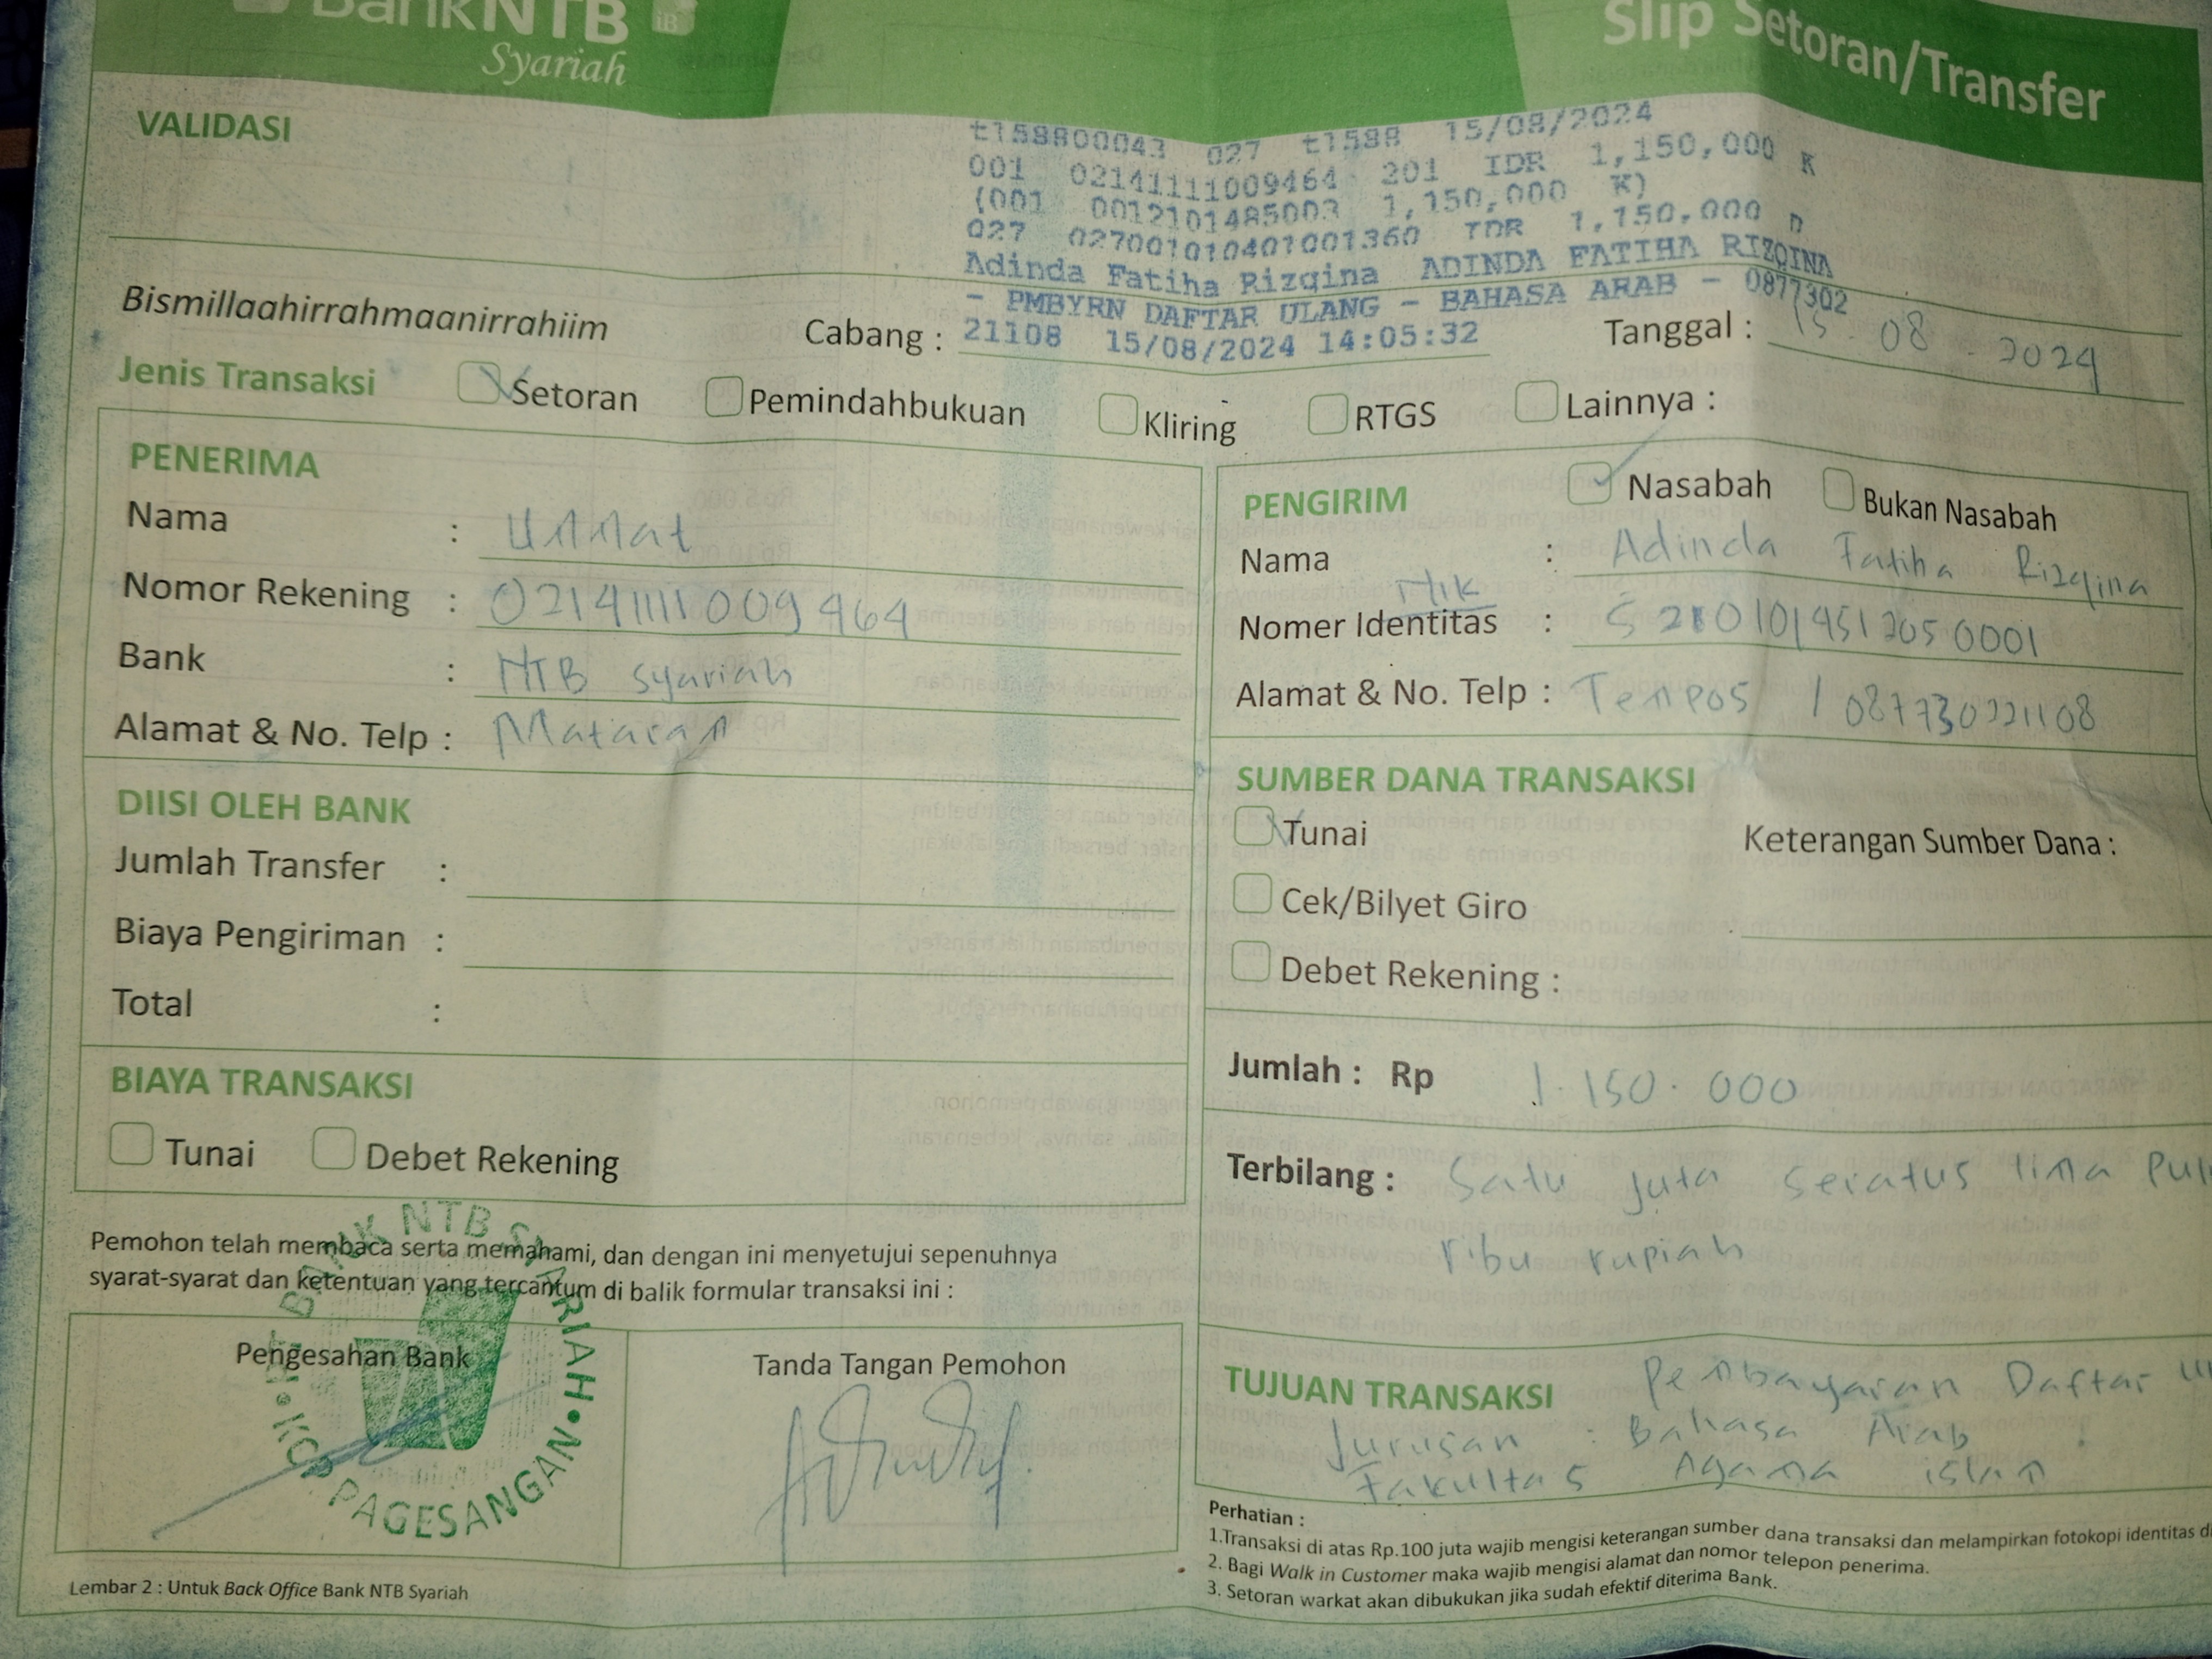 BankNTB
Syariah
iB
Slip Setoran/Transfer
VALIDASI
t158800043 027 t1588 15/08/2024
001 02141111009464 201 IDR 1,150,000 K
(001 0012101485003 1,150,000 K)
027 027001010401001360 IDR 1,150,000 D
Adinda Fatiha Rizqina ADINDA FATIHA RIZQINA
- PMBYRN DAFTAR ULANG - BAHASA ARAB - 0877302
21108 15/08/2024 14:05:32
Bismillaahirrahmaanirrahiim
Cabang :
Tanggal : 15 - 08 - 2024
Jenis Transaksi Setoran Pemindahbukuan Kliring RTGS Lainnya :
PENERIMA
Nama : Ummat
Nomor Rekening : 02141111009464
Bank : NTB Syariah
Alamat & No. Telp : Mataram
PENGIRIM Nasabah Bukan Nasabah
Nama : Adinda Fatiha Rizqina
NIK
Nomer Identitas :
Alamat & No. Telp : Tempos / 087730221108
DIISI OLEH BANK
Jumlah Transfer :
Biaya Pengiriman :
Total :
SUMBER DANA TRANSAKSI
Tunai
Keterangan Sumber Dana :
Cek/Bilyet Giro
Debet Rekening :
BIAYA TRANSAKSI
Tunai Debet Rekening
Jumlah : Rp 1.150.000
Terbilang : Satu juta seratus lima pul
ribu rupiah
Pemohon telah membaca serta memahami, dan dengan ini menyetujui sepenuhnya
syarat-syarat dan ketentuan yang tercantum di balik formular transaksi ini :
Pengesahan Bank
BANK NTB SYARIAH
KCP PAGESANGAN
Tanda Tangan Pemohon
TUJUAN TRANSAKSI Pembayaran Daftar Ul
Jurusan : Bahasa Arab
Fakultas Agama islam
Perhatian :
1.Transaksi di atas Rp.100 juta wajib mengisi keterangan sumber dana transaksi dan melampirkan fotokopi identitas di
2. Bagi Walk in Customer maka wajib mengisi alamat dan nomor telepon penerima.
3. Setoran warkat akan dibukukan jika sudah efektif diterima Bank.
Lembar 2 : Untuk Back Office Bank NTB Syariah